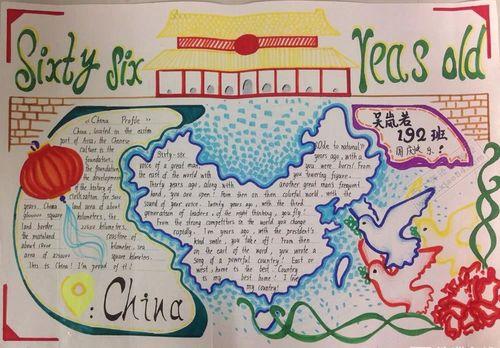 Sixty six
Yeas old
《China Profile》
China, located in the eastern
part of Asia, the Chinese
culture is the
foundation,
the foundation
the development
of the history of
civilization, for
years, China land area of
square kilometers, the
land border
kilometers,
the mainland coastline of
about 18000 kilometers, sea
area of square kilometers.
This is China! I'm proud of it!
: China
Sixty-six
voice of a great man
the east of the world with
Thirty years ago, along with
hand, you are open! From then on, them colorful world, with the
sound of your voice, twenty years ago, with the third
generation of leaders of the right thinking, you fly!
from the strong competitors in the world you change
rapidly. Ten years ago, with the president's
kind smile, you take off! From then
on the east of the word, you wrote a
song of a powerful country! East or
west, home is the best! Country
is my best home! I love
my country!
《Ode to national》
years ago, with a
you were born! From
you towering figure
another great man's frequent
吴岚若
192班
国庆快乐!